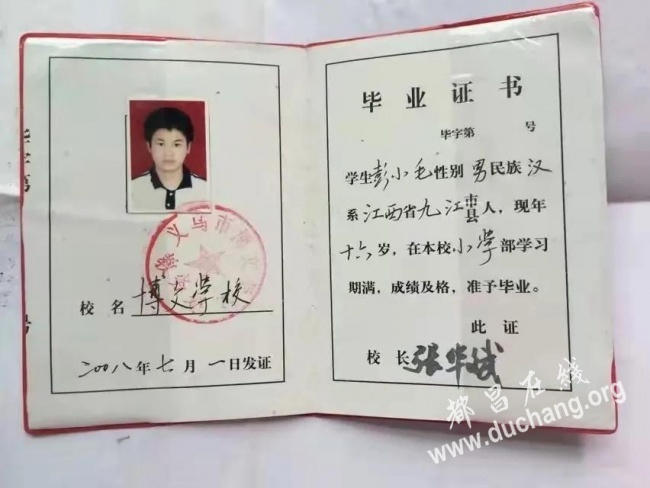 毕字第
号
义乌市博文学校
校名 博文学校
二00八年七月一日发证
毕业证书
毕字第 号
学生彭小毛性别男民族汉
系江西省九江市县人,现年
十六岁,在本校小学部学习
期满,成绩及格,准予毕业。
此证
校长 张华斌
都昌在线
www.duchang.org